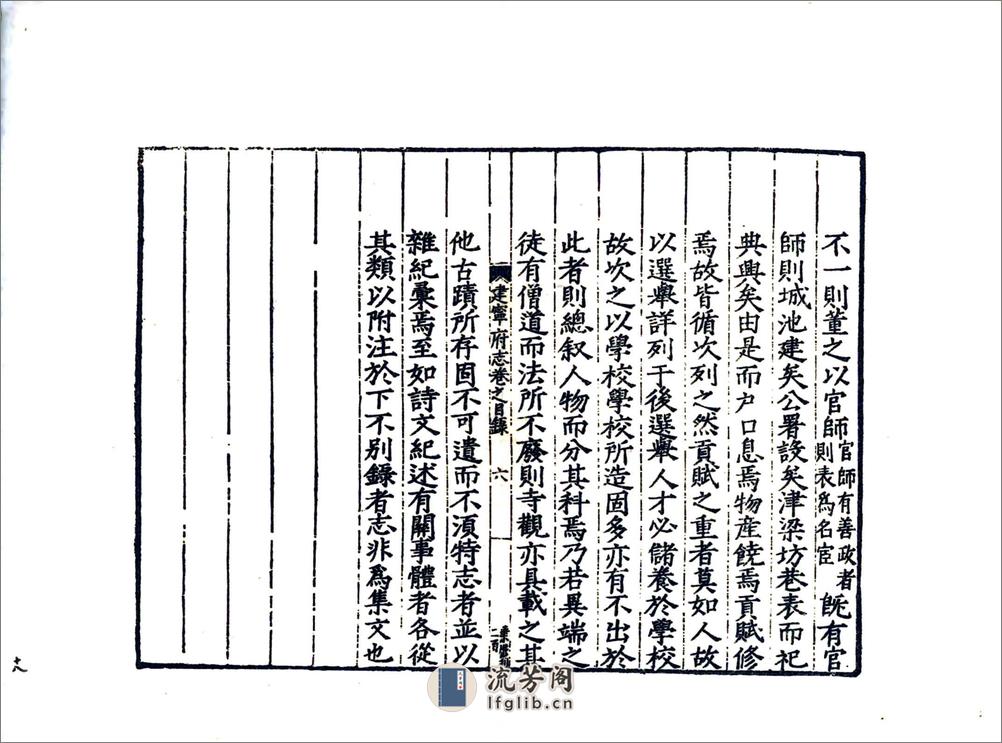 不一則董之以官師官師有善政者則表爲名宦既有官
師則城池建矣公署設矣津梁坊巷表而祀
典興矣由是而户口息焉物産饒焉貢賦修
焉故皆循次列之然貢賦之重者莫如人故
以選舉詳列于後選舉人才必儲養於學校
故次之以學校學校所造固多亦有不出於
此者則總叙人物而分其科焉乃若異端之
徒有僧道而法所不廢則寺觀亦具載之其
建寧府志卷之目録 六
他古蹟所存固不可遺而不須特志者並以
雜紀彙焉至如詩文紀述有關事體者各從
其類以附注於下不别録者志非爲集文也
流芳阁
lfglib.cn